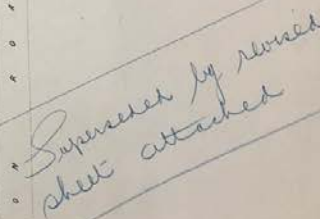 Superseded by revised
sheet attached